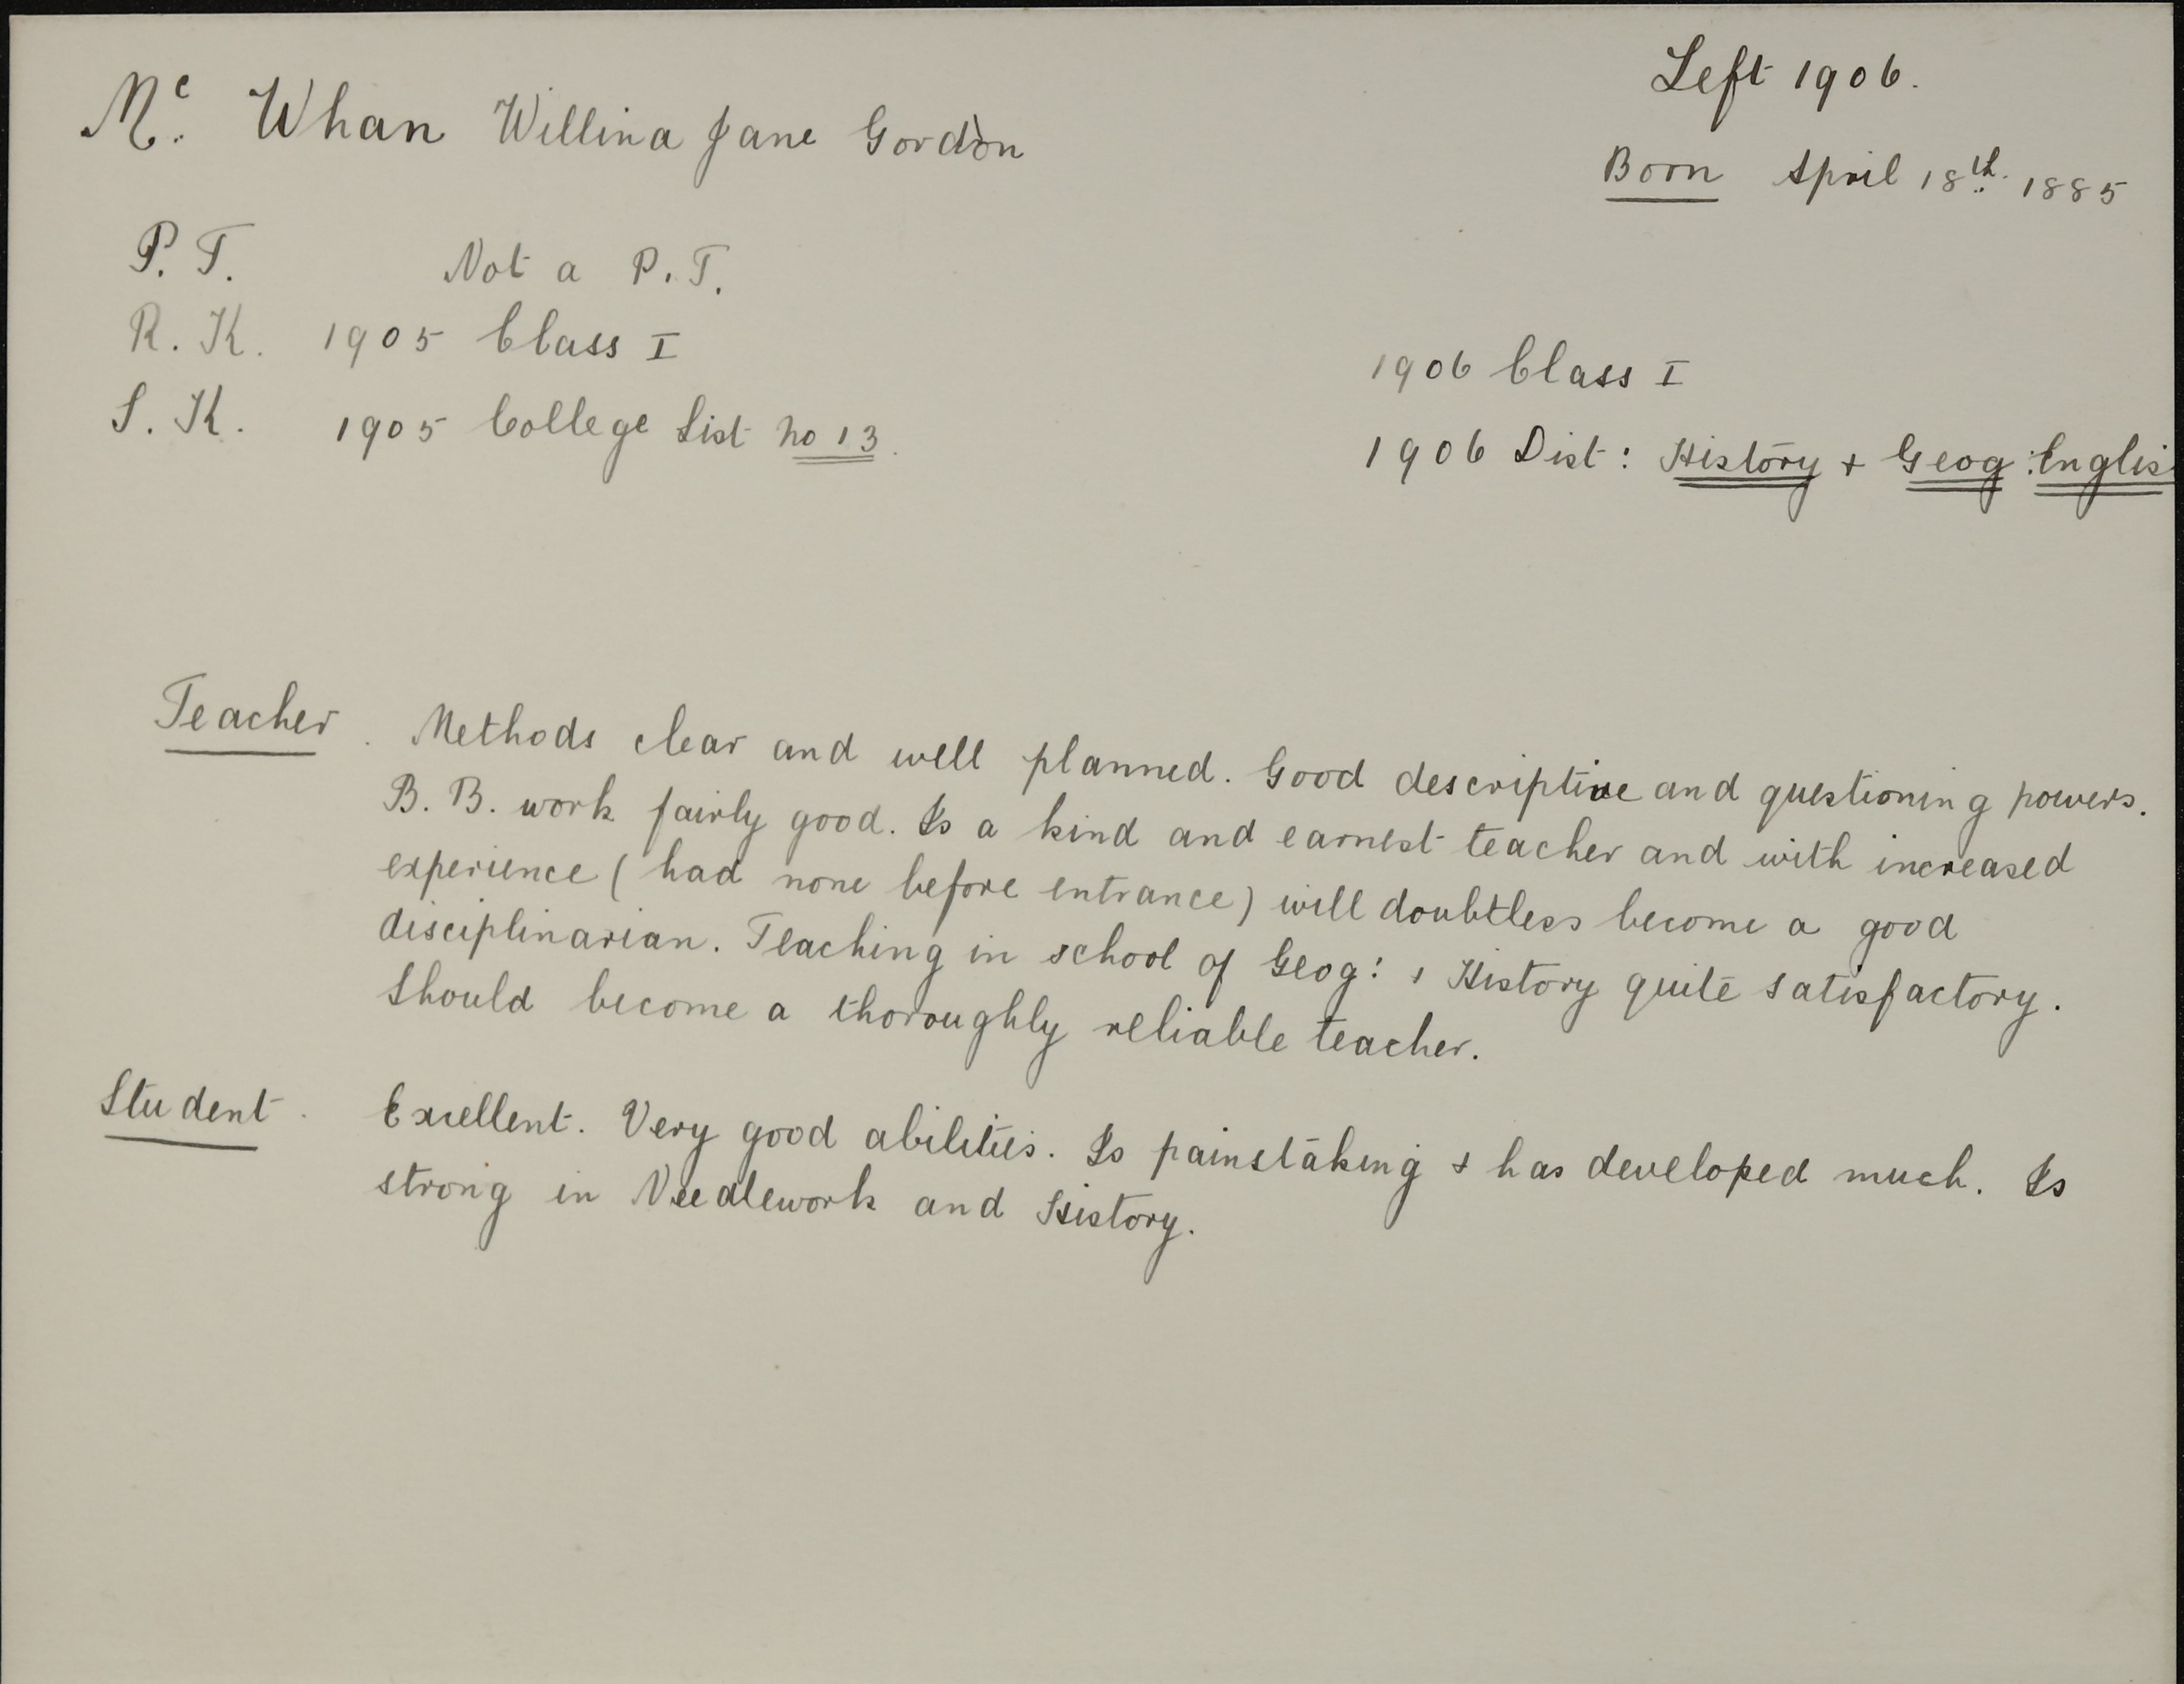 Left 1906.
Mc. Whan Willina Jane Gordon
Born April 18th. 1885
P. T. Not a P. T.
R. K. 1905 Class I 1906 Class I
S. K. 1905 College List no 13. 1906 Dist: History + Geog: Englis
Teacher. Methods clear and well planned. Good descriptive and questioning powers.
B. B. work fairly good. Is a kind and earnest teacher and with increased
experience (had none before entrance) will doubtless become a good
disciplinarian. Teaching in school of Geog: + History quite satisfactory.
Should become a thoroughly reliable teacher.
Student. Excellent. Very good abilities. Is painstaking + has developed much. Is
strong in Needlework and History.